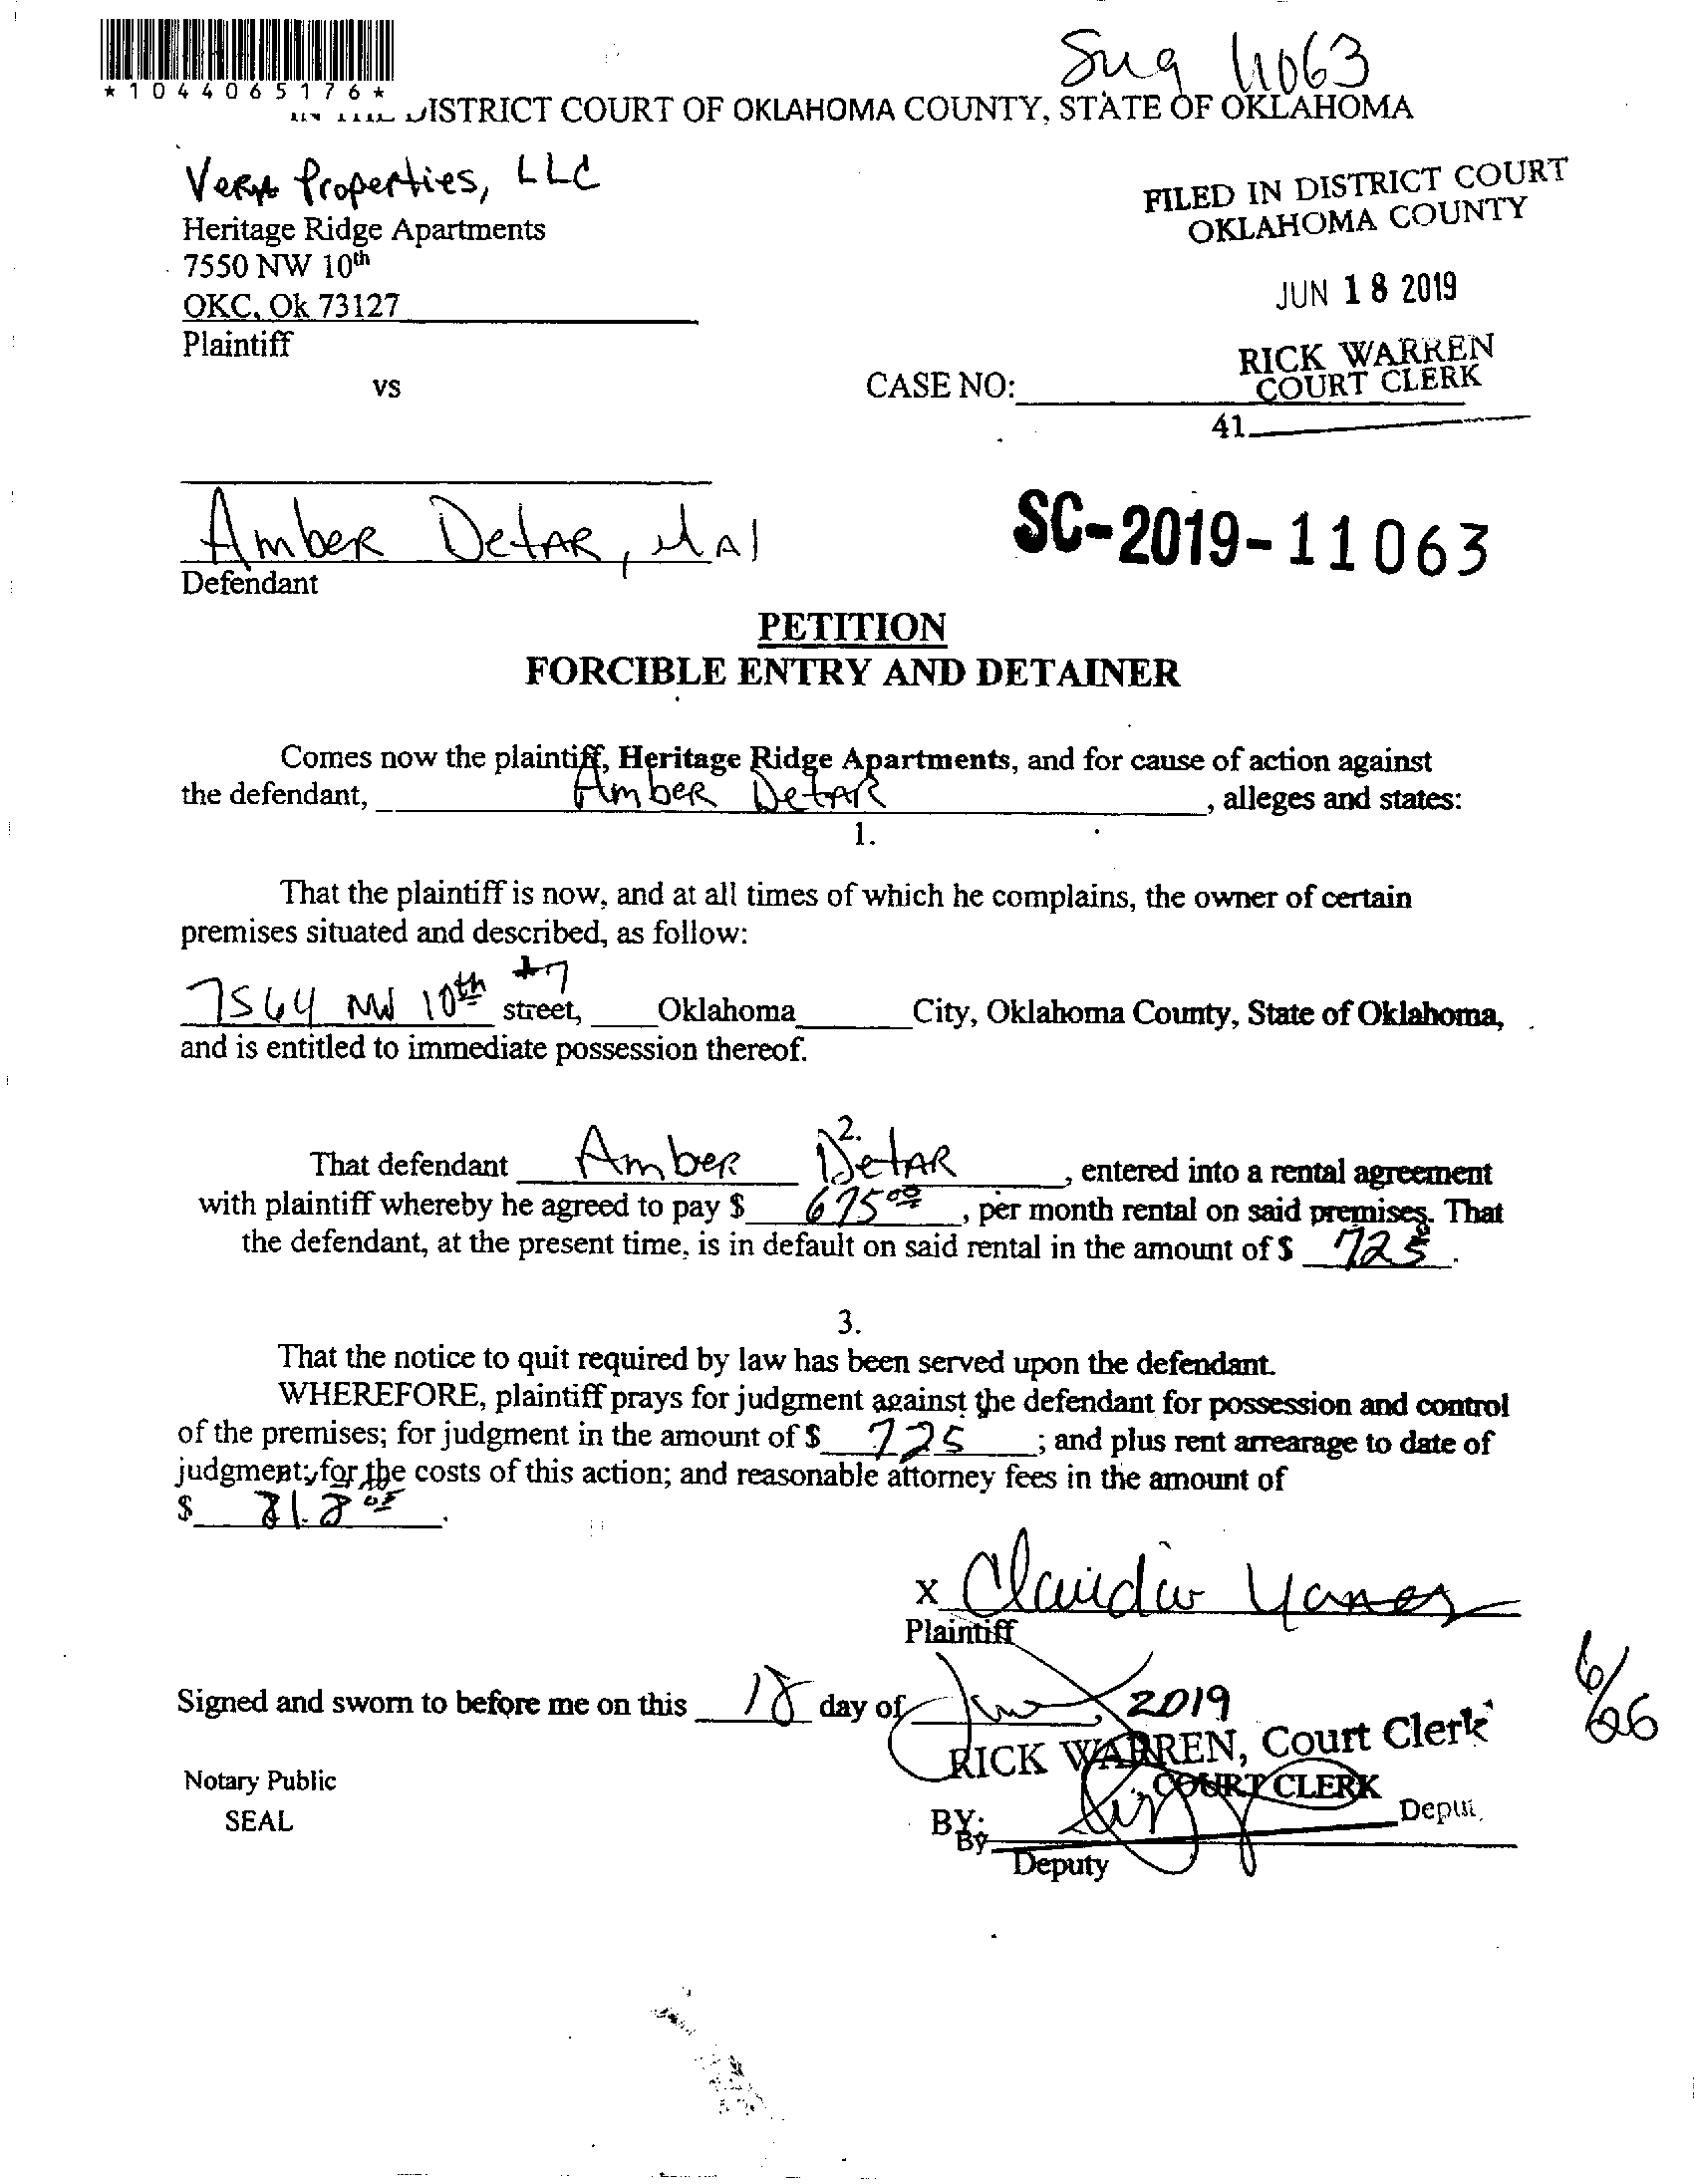 *1044065176*
Sug 11063
DISTRICT COURT OF OKLAHOMA COUNTY, STATE OF OKLAHOMA
Properties, LLC
Heritage Ridge Apartments
7550 NW 10th
OKC, Ok 73127
Plaintiff
vs
FILED IN DISTRICT COURT
OKLAHOMA COUNTY
JUN 18 2019
RICK WARREN
COURT CLERK
CASE NO:
41
Amber Detar,
Defendant
SC-2019-11063
PETITION
FORCIBLE ENTRY AND DETAINER
Comes now the plaintiff, Heritage Ridge Apartments, and for cause of action against
the defendant, Amber Detar, alleges and states:
1.
That the plaintiff is now, and at all times of which he complains, the owner of certain
premises situated and described, as follow:
7564 NW 10th #7 street, Oklahoma City, Oklahoma County, State of Oklahoma,
and is entitled to immediate possession thereof.
2.
That defendant Amber Detar, entered into a rental agreement
with plaintiff whereby he agreed to pay $ 675 00, per month rental on said premises. That
the defendant, at the present time, is in default on said rental in the amount of $ 725.
3.
That the notice to quit required by law has been served upon the defendant.
WHEREFORE, plaintiff prays for judgment against the defendant for possession and control
of the premises; for judgment in the amount of $ 725; and plus rent arrearage to date of
judgment; for the costs of this action; and reasonable attorney fees in the amount of
$
x Claudia Yanes
Plaintiff
Signed and sworn to before me on this 18 day of June, 2019
6/26
RICK WARREN, Court Clerk
COURT CLERK
Notary Public
SEAL
BY:
By
Deputy